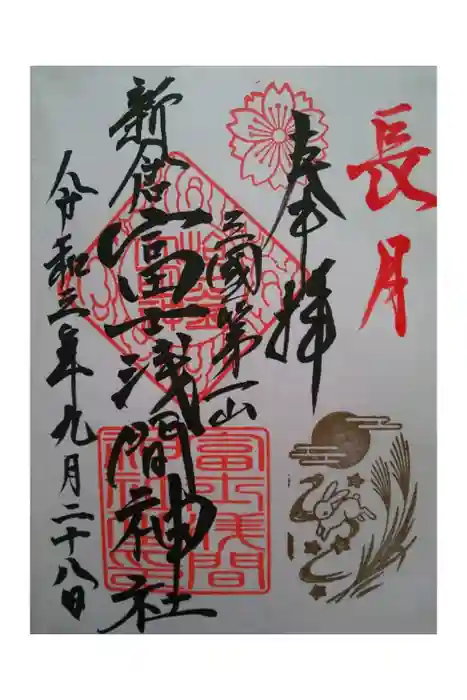 長月
奉拝
三國第一山
新倉富士浅間神社
令和三年九月二十八日
富士浅間